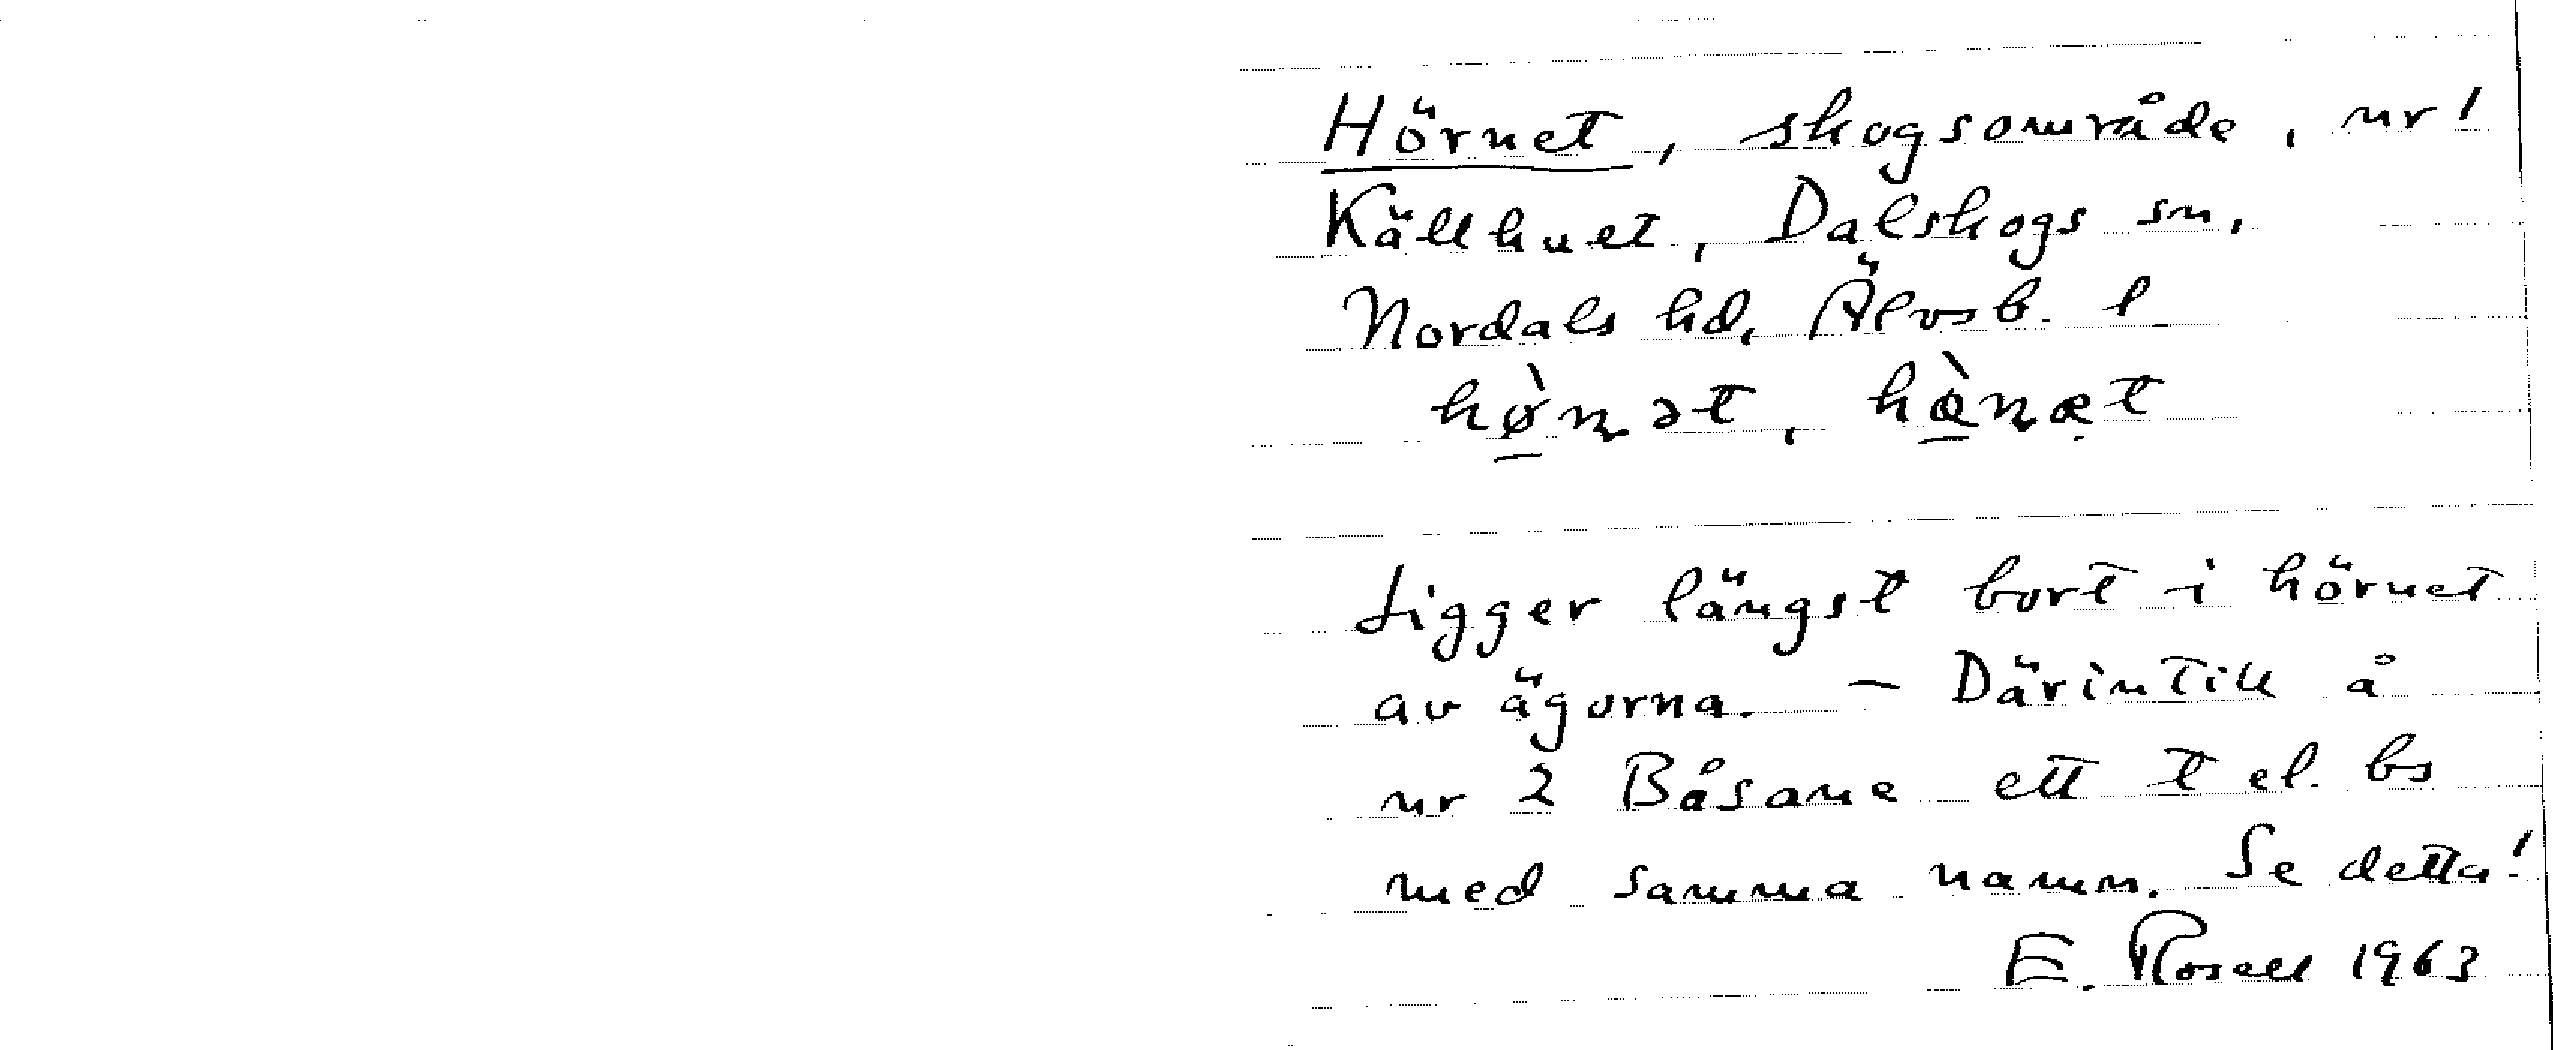 Hörnet, skogsområde, nr 1
Källhuet, Dalskogs sn,
Nordals hd, Älvsb. l
Ligger längst bort i hörnet
av ägorna. – Därintill å
nr 2 Båsane ett t el. bs
med samma namn. Se detta!
E. Rosell 1963